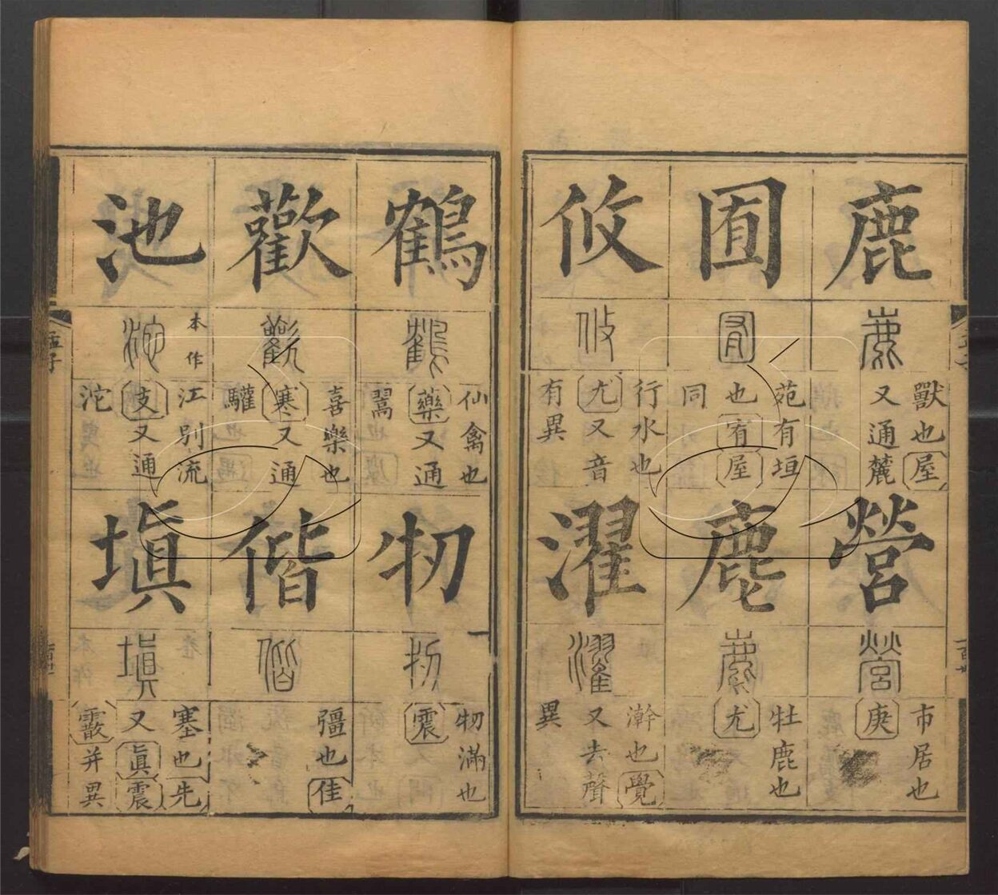 鹿
鹿
獸也屋
又通麓
營
營
市居也
庚
囿
囿
苑有垣
也宥屋
同
麀
麀
牡鹿也
尤
攸
攸
行水也
尤又音
有異
濯
濯
澣也覺
又去聲
異
鶴
鶴
仙禽也
藥又通
翯
牣
牣
牣滿也
震
歡
歡
喜樂也
寒又通
驩
偕
偕
彊也佳
池
本作
沱
江別流
支又通
沱
塡
塡
塞也先
又眞震
霰并異
孟子